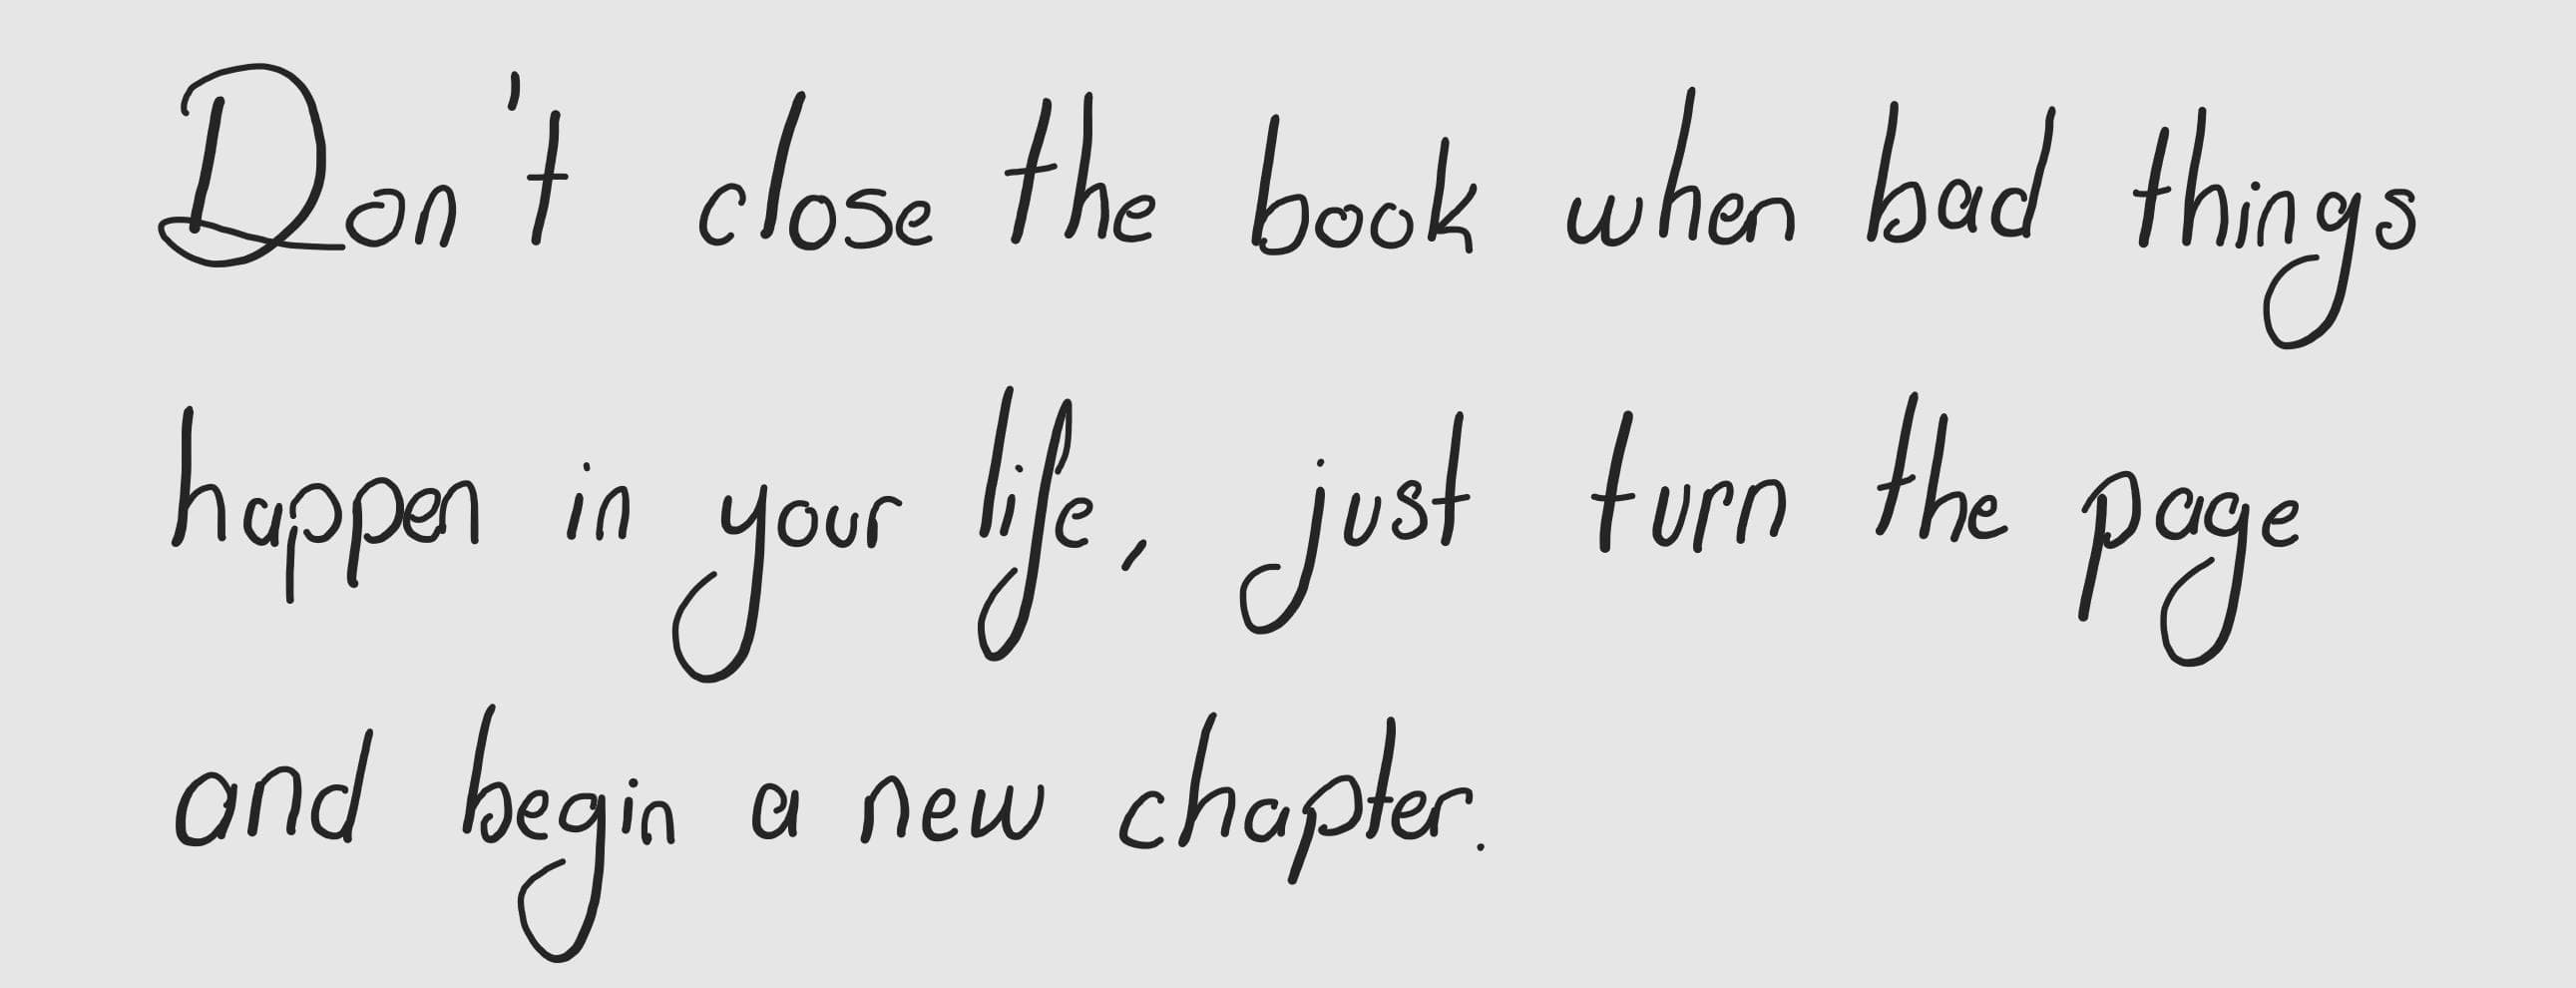 Don't close the book when bad things
happen in your life, just turn the page
and begin a new chapter.